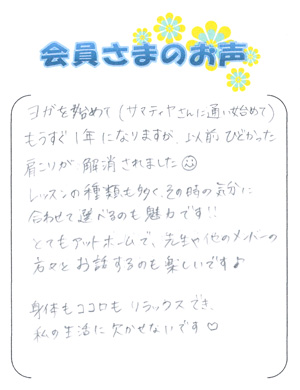 会員さまのお声
ヨガを始めて(サマディヤさんに通い始めて)
もうすぐ1年になりますが、以前ひどかった
肩こりが解消されました☺
レッスンの種類も多く、その時の気分に
合わせて選べるのも魅力です!!
とてもアットホームで、先生や他のメンバーの
方々とお話するのも楽しいですよ
身体もココロもリラックスでき、
私の生活に欠かせないです♡